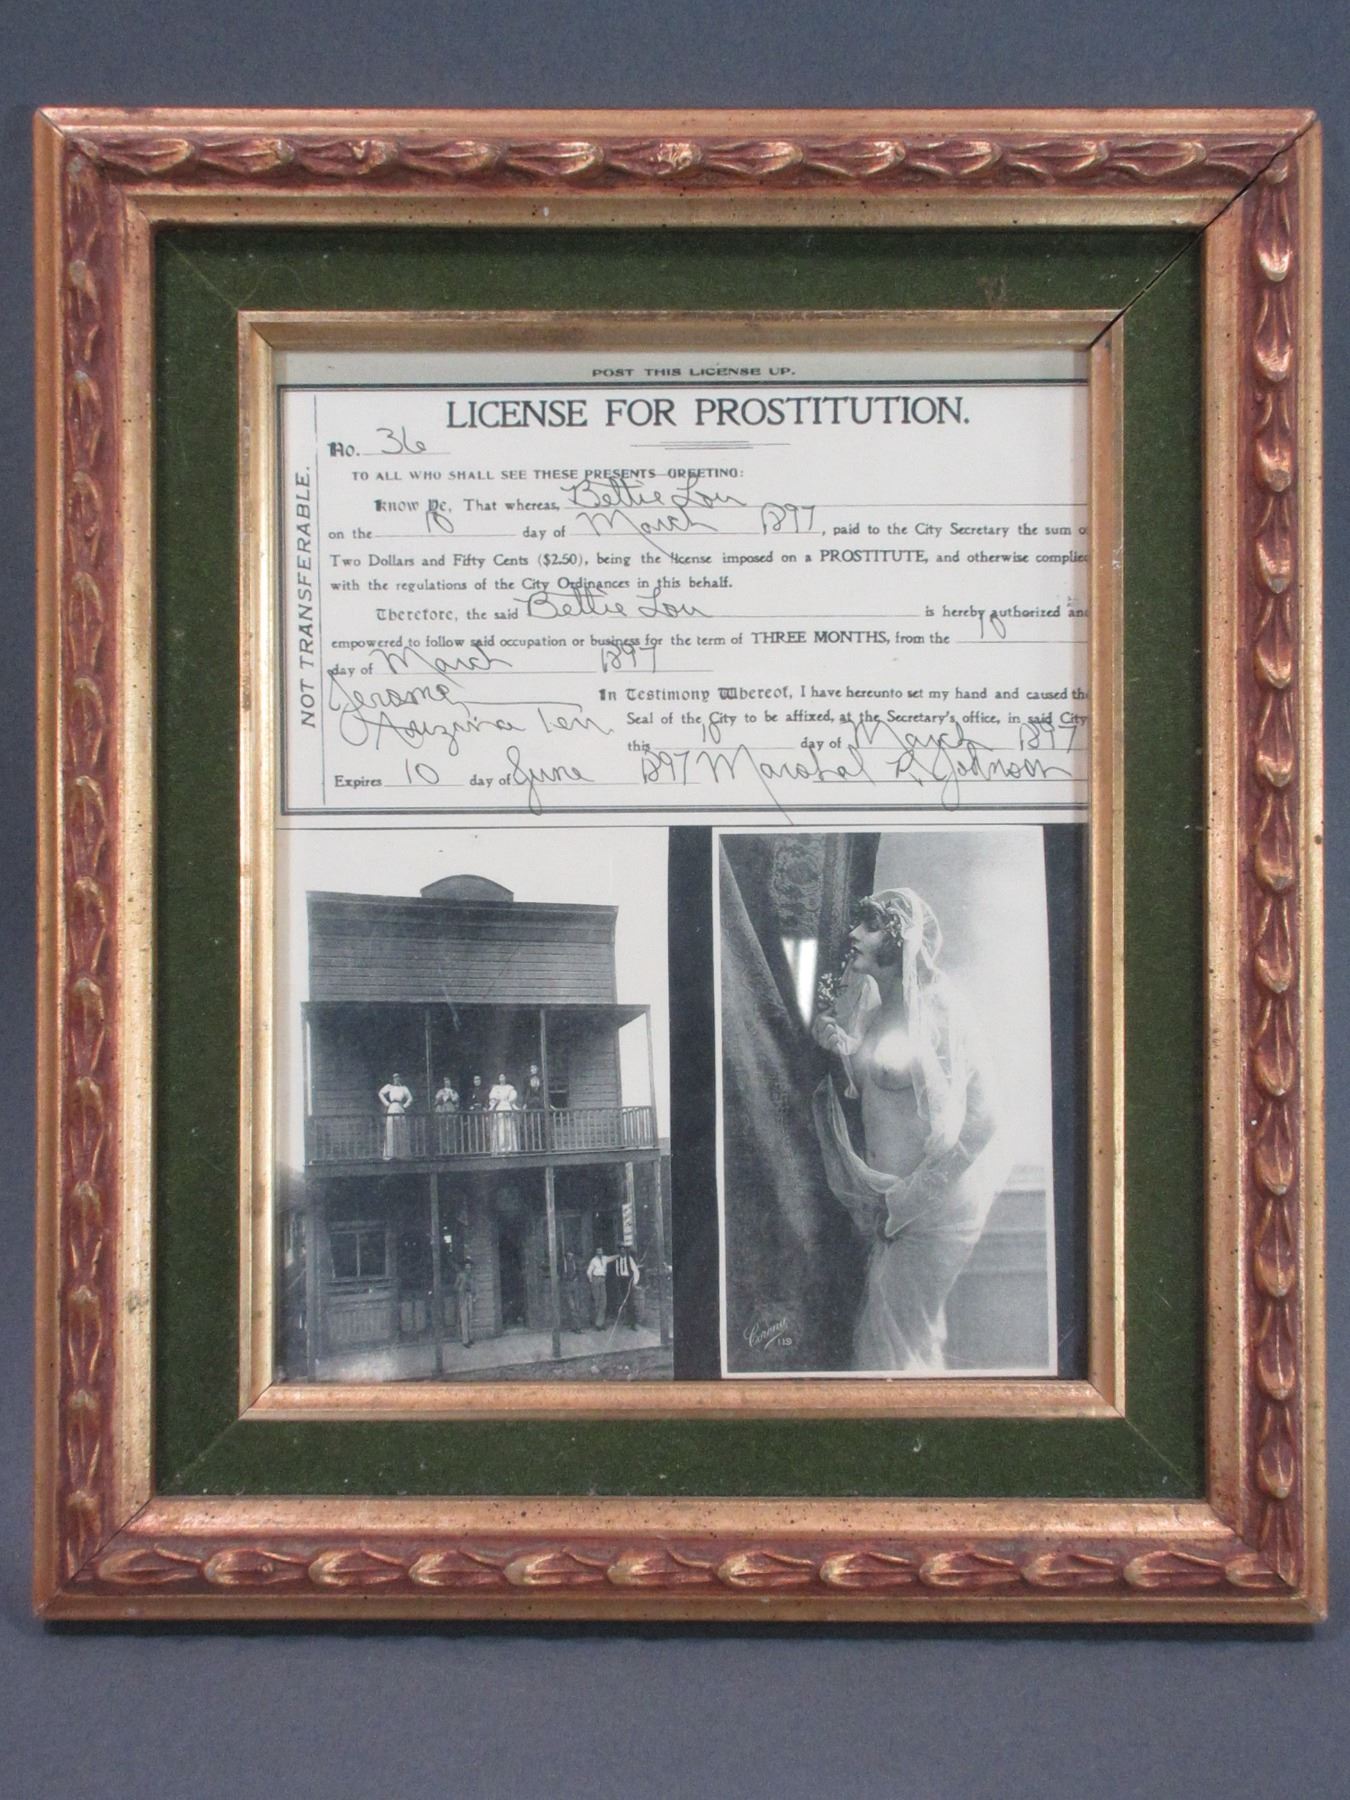 POST THIS LICENSE UP.
LICENSE FOR PROSTITUTION.
No. 36
TO ALL WHO SHALL SEE THESE PRESENTS GREETING:
Know Ye, That whereas, Bettie Lou
on the 10 day of March 1897, paid to the City Secretary the sum o
Two Dollars and Fifty Cents ($2.50), being the license imposed on a PROSTITUTE, and otherwise complied
with the regulations of the City Ordinances in this behalf.
Therefore, the said Bettie Lou is hereby authorized and
empowered to follow said occupation or business for the term of THREE MONTHS, from the 10
day of March 1897
Jerome, In Testimony Whereof, I have hereunto set my hand and caused the
Auzina Terr Seal of the City to be affixed, at the Secretary's office, in said City
this 10 day of March 1897
Expires 10 day of June 1897 Marshal R. Johnson
NOT TRANSFERABLE.
Corona
119